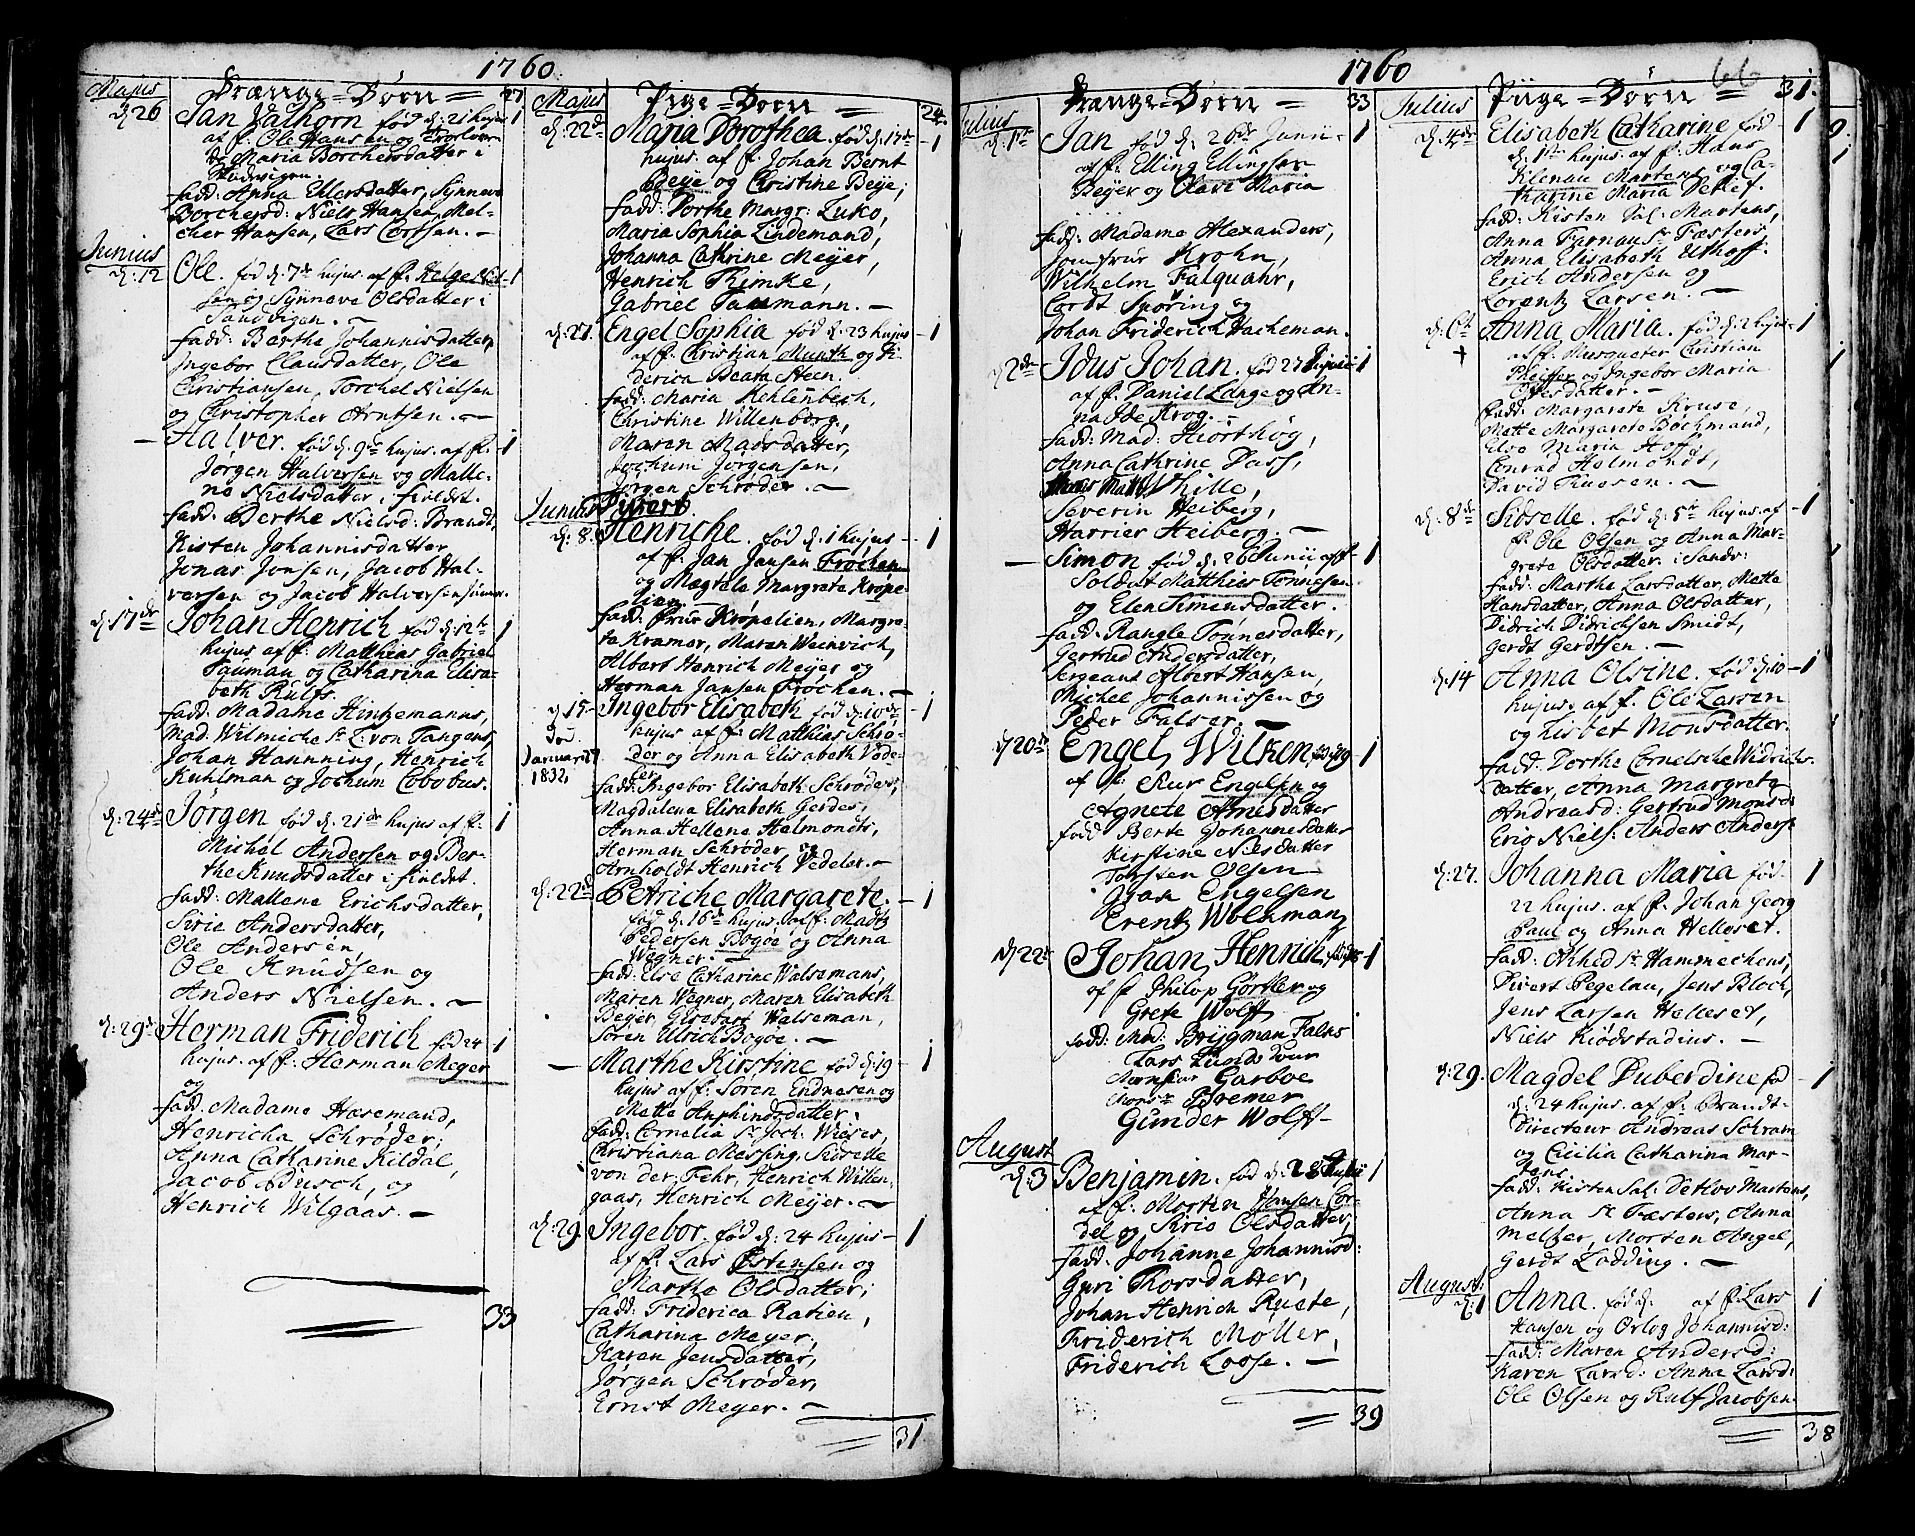 1760
Majus
Drænge-Børn
27
d. 26
Jan Valhorn født d: 21 hujus 1
af f. Ole Hansen og
Maria Borchersdatter i
Studevigen.
fadd: Anna Ehlersdatter, Synneve
Borchersd: Niels Hansen, Mel-
cher Hansen, Lars Corssen.
Junius
d: 12
Ole. fød d: 7de hujus. af f. Helge Niel- 1
sen og Synneve Olsdatter i
Sandvigen.
fadd: Barthe Johannisdatter,
Ingebor Clausdatter, Ole
Christiansen, Torchel Nielsen
og Christopher Arntsen.
Halver. fød d: 9de hujus. af f. 1
Jørgen Halversen og Malle-
ne Nielsdatter i fieldet.
fadd: Berthe Nielsd: Brandt,
Kisten Johannisdatter
Jonas Jonsen, Jacob Hal-
versen og Jacob Halversen junior.
d: 17de
Johan Henrich fød d: 12te 1
hujus af f: Matthias Gabriel
Tauman og Catharina Elisa-
beth Rulfs.
fadd: Madame Hintzemanns,
Mad: Wilmiche Sr. T: von Tangens,
Johan Hannning, Henrich
Kuhlman og Jochum Cobobus.
d: 24de
Jørgen fød d: 21de hujus af f: 1
Michel Andersen og Ber-
the Knudsdatter i fieldet.
fadd: Mallene Erichsdatter,
Sirie Andersdatter,
Ole Andersen
Ole Knudsen og
Anders Nielsen.
d: 29de
Herman Friderich fød 24 1
hujus. af f. Herman Meyer
og
fadd. Madame Hasemand,
Henricha Schrøder,
Anna Catharine Kildal,
Jacob Busch, og
Henrich Wilgaas.
33
Majus
Pige-Børn
24
d: 22de
Maria Dorothea. fød d: 17de 1
hujus. af f. Johan Bernt
Beije og Christine Beije;
fadd: Dorthe Margr: Zuko,
Maria Sophia Lindemand,
Johanna Cathrine Meyer,
Henrich Rimke,
Gabriel Taumann.
d: 27.
Engel Sophia fød d: 23 hujus 1
af f. Christian Munth og Fri-
derica Beata Steen.
fadd: Maria Kehlenbech,
Christine Willenborg,
Maren Madsdatter,
Jochum Jørgensen,
Jørgen Schrøder.
Junius
d: 8.
Henriche. fød d: 1 hujus 1
af f. Jan Jansen Frøchen
og Magtele Margreta Krøpe-
lien.
fadd: Frue Krøpelien, Margre-
ta Kramer, Maren Weinvich,
Albert Henrich Meyer og
Herman Jansen Frøchen.
d 15
Ingebor Elisabeth fød d: 10de 1
Død
Januarii
1832
hujus af f. Matthias Schrø-
der og Anna Elisabeth Vede-
ler.
fadd: Ingebor Elisabeth Schrøders,
Magdalena Elisabeth Gerdes,
Anna Hellene Helmonds,
Herman Schrøder og
Arnholdt Henrich Vedeler.
d: 22de
Petriche Margarete. 1
fød d: 16de hujus, af f: Madtz
Pedersen Bogøe og Anna
Wegner.
fadd: Else Catharine Walsemans,
Maren Wegner, Maren Elisabeth
Beyer, Gisebart Walseman,
Søren Ulrich Bogøe.
Marthe Kirstine fød d: 19 1
hujus af f. Søren Endresen og
Mette Anphindsdatter.
fadd: Cornelia Sr. Joch: Wieses,
Christiana Messing, Sidselle
von der Fehr, Henrich Willen-
gaas, Henrich Meyer.
d: 29.
Ingebor. fød d: 24 hujus 1
af f. Lars Østensen og
Marthe Olsdatter;
fadd: Friderica Ratien,
Catharina Meyer,
Karen Jensdatter,
Jørgen Schrøder,
Ernst Meyer.
31
1760
66
Julius
Drænge-Børn
33
d: 1te
Jan fød d. 26de Junii 1
af f. Elling Ellingsen
Beyer og Clare Maria
fadd: Madame Alexanders,
Jomfrue Krohn,
Wilhelm Falquahr,
Cordt Sporing og
Johan Friderich Hacheman.
d 2de
Idus Johan. fød 27 Junii 1
af f. Daniel Lange og An-
na Ide Krog.
fadd: Mad: Hiorthøg,
Anna Cathrine Dass,
Thille,
Severin Heiberg,
Harrier Heiberg.
Simon fød d: 26 Junii af f 1
Soldat Matthias Tonnesen
og Elen Simensdatter.
fadd: Rangle Tonnesdatter,
Gertrud Andersdatter,
Sergeant Albert Hansen,
Michel Johannissen og
Peder Falser.
d 20de
Engel Wilken fød d 19 1
af f. Siur Engelsen og
Agnete Arnesdatter
fadd Berte Johannesdatter
Kirstine Nilsdatter
Torsten Olsen
Johan Engelsen
Erentz Wolhman
d 22de
Johan Henrich 1
af f Philop Gørtler og
Grete Wolff
fadd: Mad: Bryggman Falks
Lars Lund
Garboe
Monsr Bremer
Gunder Wolff
August
d: 3
Benjamin. fød d: 28 Julii 1
af f. Morten Hansen Cor-
del og Siric Olsdatter,
fadd. Johanne Johannisd:
Guri Thorsdatter,
Johan Henrich Ruste,
Friderich Moller,
Friderich Loose.
39
Julius
Piige-Børn
31.
d: 4de
Elisabeth Catharine fød 1
d. 1te hujus. af f. Hans
Klenau Martens og Ca-
tharine Maria Detlef.
fadd: Kisten Sal: Martens,
Anna Farnaus Sr. Fæsters
Anna Elisabeth Uthoff.
Erich Andersen og
Lorentz Larsen.
d: 6te
+
Anna Maria. fød d: 2 hujus 1
af f. Musqueter Christian
Pheiffer og Ingebor Maria
Olesdatter.
fadd: Margarete Kruse,
Mette Margarete Bochmand,
Else Maria Hoff,
Conrad Helmondt,
David Tuesen.
d: 8de
Sidselle. fød d: 5te hujus. af 1
f. Ole Olsen og Anna Mar-
grete Olsdatter. i Sandv:
fadd: Marthe Larsdatter, Mette
Hansdatter, Anna Olsdatter,
Didrich Didrichsen Smidt,
Gerdt Gerdtsen.
d: 14
Anna Olsine. fød d: 10 1
hujus. af f. Ole Larsen
og Lisbet Monsdatter.
fadd: Dorthe Cornelsche Widrichs-
datter, Anna Margrete
Andreasd: Gertrud Monsd:
Eric Niels: Anders Anderse
d: 27.
Johanna Maria fød 1
22 hujus. af f. Johan Georg
Paul og Anna Helleset.
fadd: Ahed Sr. Hammechens,
Divert Pegelau, Jens Bloch,
Jens Larsen Helleset,
Niels Kiødstadius.
d: 29.
Magdel Duberdine fø 1
d. 24 hujus. af f. Brandt-
Directeur Andreas Schram
og Cicilia Catharina Mar-
tens
fadd: Kisten Sal: Detlov Martens,
Anna Sr. Fæsters, Anna
Meltzer, Morten Angel,
Gerdt Lodding.
August:
d: 1
Anna. fød d. af f. Lars 1
Hansen og Orlog Johannisd:
fadd: Maren Andersd:
Karen Larsd: Anna Larsd:
Ole Olsen og Rulf Jacobsen
38